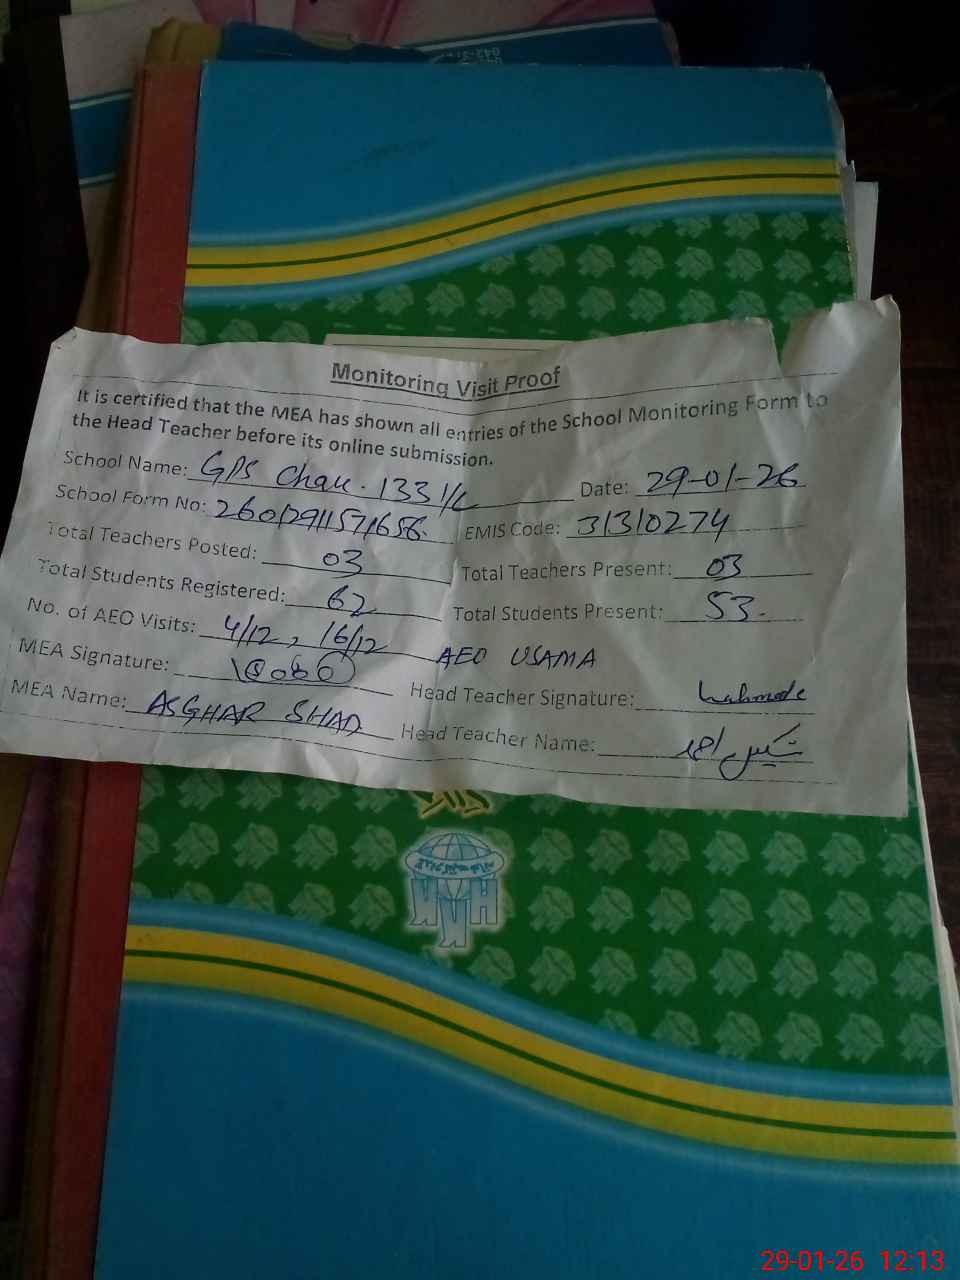 Monitoring Visit Proof
It is certified that the MEA has shown all entries of the School Monitoring Form to
the Head Teacher before its online submission.
School Name: GPS Chak. 133 1/L Date: 29-01-26
School Form No: EMIS Code: 31310274
Total Teachers Posted: 03 Total Teachers Present: 03
Total Students Registered: 62 Total Students Present: 53.
No. of AEO Visits: 4/12, 16/12 AEO USAMA
MEA Signature: Head Teacher Signature:
MEA Name: ASGHAR SHAD Head Teacher Name:
29-01-26 12:13